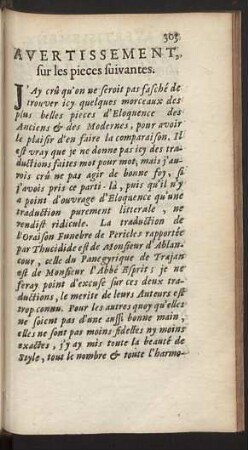 305
AVERTISSEMENT,
sur les pieces suivantes.
J'Ay crû qu'on ne seroit pas fasché de
trouver icy quelques morceaux des
plus belles pieces d'Eloquence des
Anciens & des Modernes, pour avoir
le plaisir d'en faire la comparaison. Il
est vray que je ne donne pas icy des tra-
ductions faites mot pour mot, mais j'au-
rois crû ne pas agir de bonne foy, si
j'avois pris ce parti-là, puis qu'il n'y
a point d'ouvrage d'Eloquence qu'une
traduction purement litterale, ne
rendist ridicule. La traduction de
l'Oraison Funebre de Pericles rapportée
par Thucidide est de Monsieur d'Ablan-
cour, celle du Panegyrique de Trajan
est de Monsieur l'Abbé Esprit; je ne
feray point d'excuse sur ces deux tra-
ductions, le merite de leurs Auteurs est
trop connu. Pour les autres quoy qu'elles
ne soient pas d'une aussi bonne main,
elles ne sont pas moins fidelles ny moins
exactes, j'y ay mis toute la beauté de
style, tout le nombre & toute l'harmo-